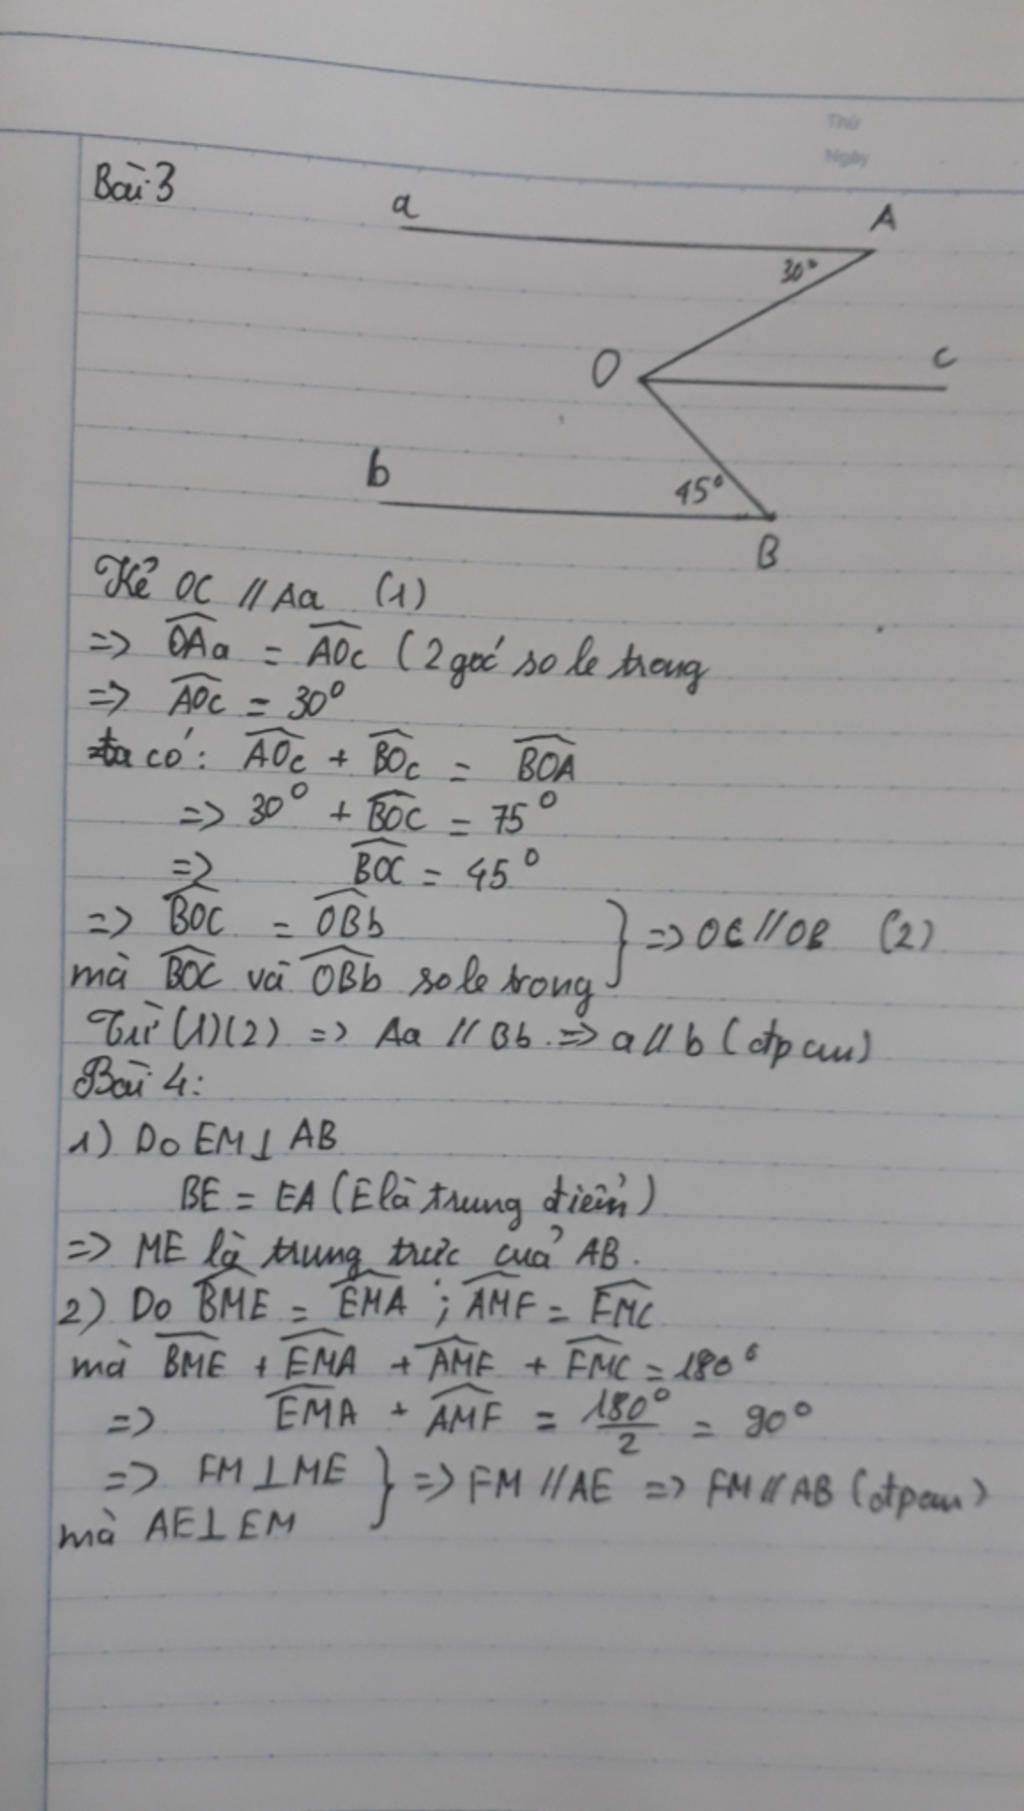 Thứ
Ngày
Bài 3
a
A
30°
O
c
b
45°
B
Kẻ OC // Aa (1)
=> OAa = AOc (2 góc so le trong
=> AOc = 30°
ta có: AOc + BOc = BOA
=> 30° + BOC = 75°
=> BOC = 45°
=> BOC = OBb
mà BOC và OBb so le trong } => OC // OB (2)
Từ (1)(2) => Aa // Bb => a // b (đpcm)
Bài 4:
1) Do EM ⊥ AB
BE = EA (E là trung điểm)
=> ME là trung trực của AB.
2) Do BME = EMA ; AMF = FMC
mà BME + EMA + AMF + FMC = 180°
=> EMA + AMF = 180°/2 = 90°
=> FM ⊥ ME } => FM // AE => FM // AB (đpcm)
mà AE ⊥ EM